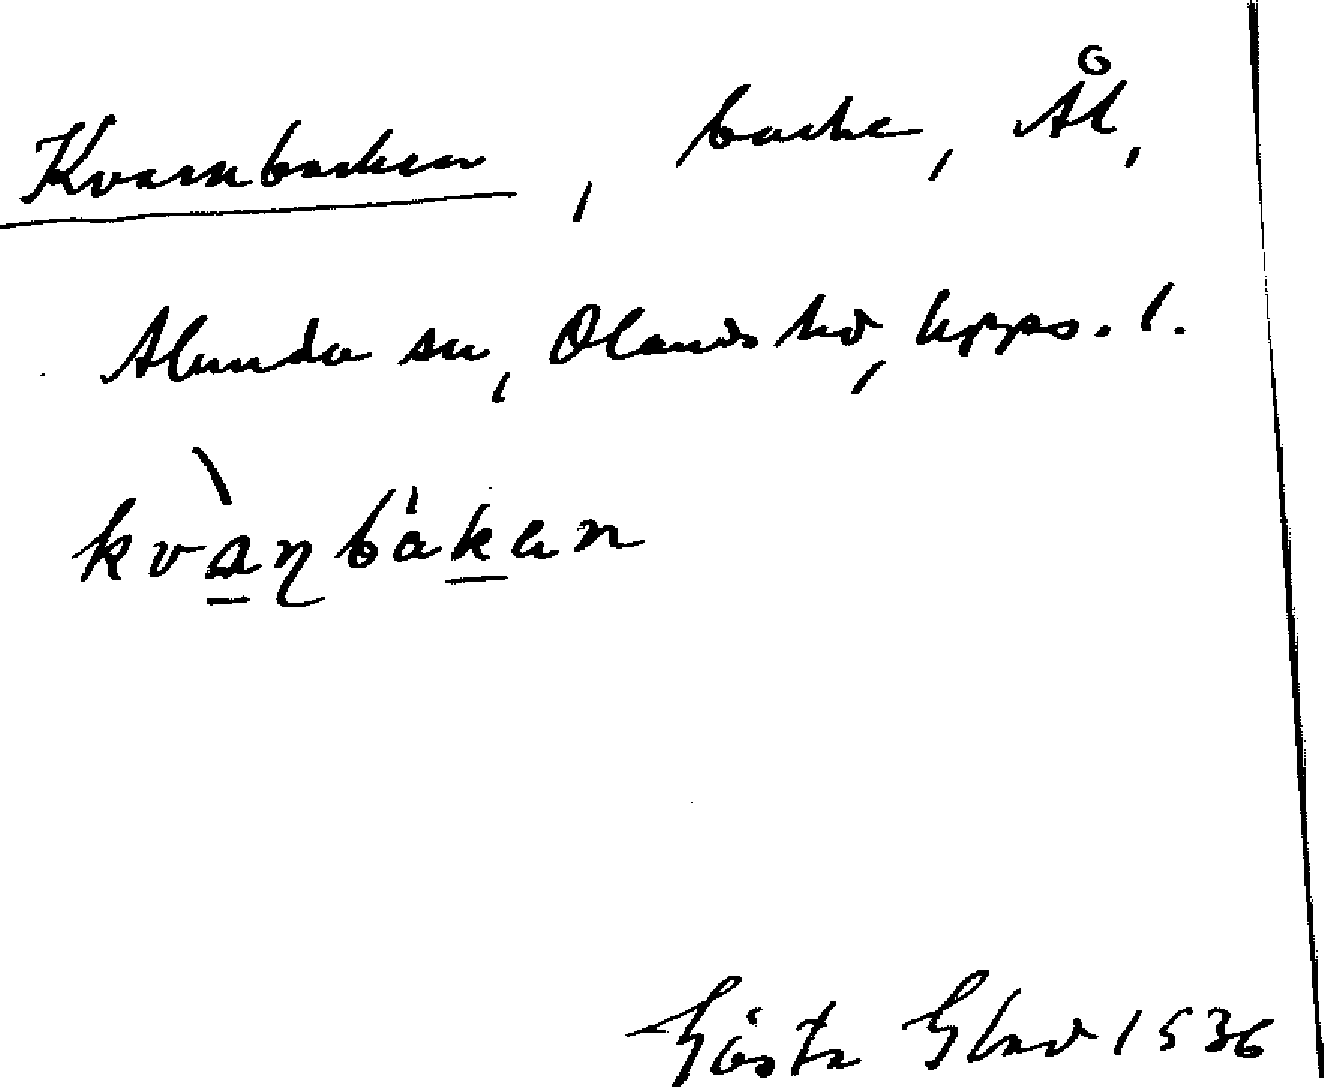 Kvarnbacken, backe, Ål,
Alunda sn, Olands hd, Upps. l.
kvàṇbákan
Gösta Glad 1936